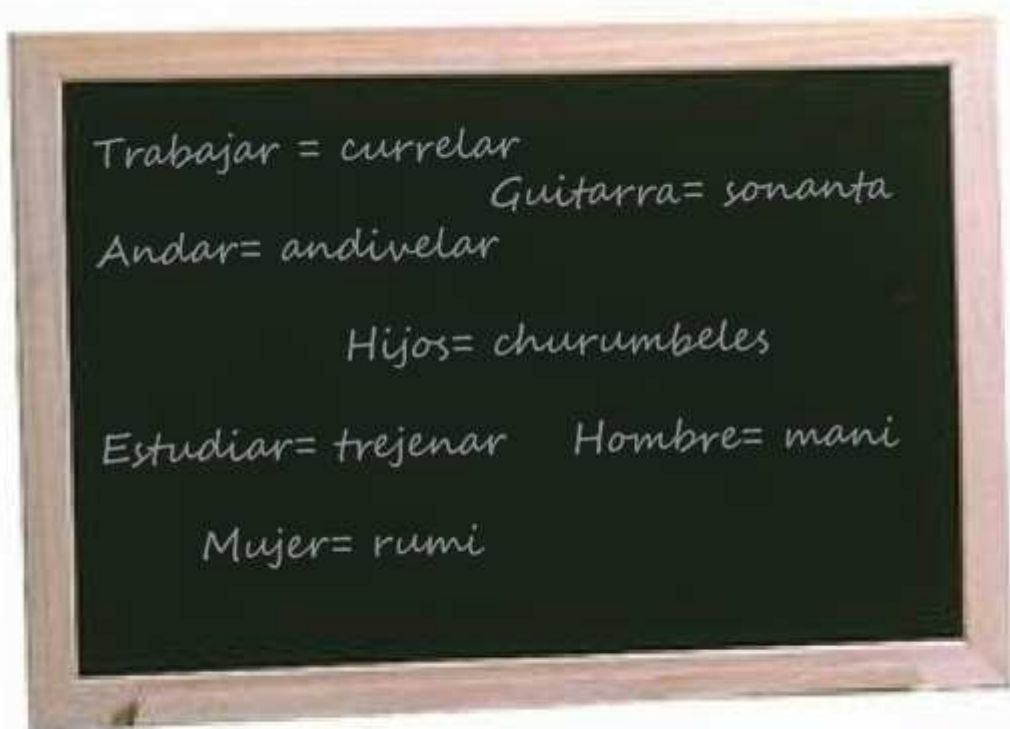 Trabajar = currelar
Guitarra= sonanta
Andar= andivelar
Hijos= churumbeles
Estudiar= trejenar Hombre= mani
Mujer= rumi